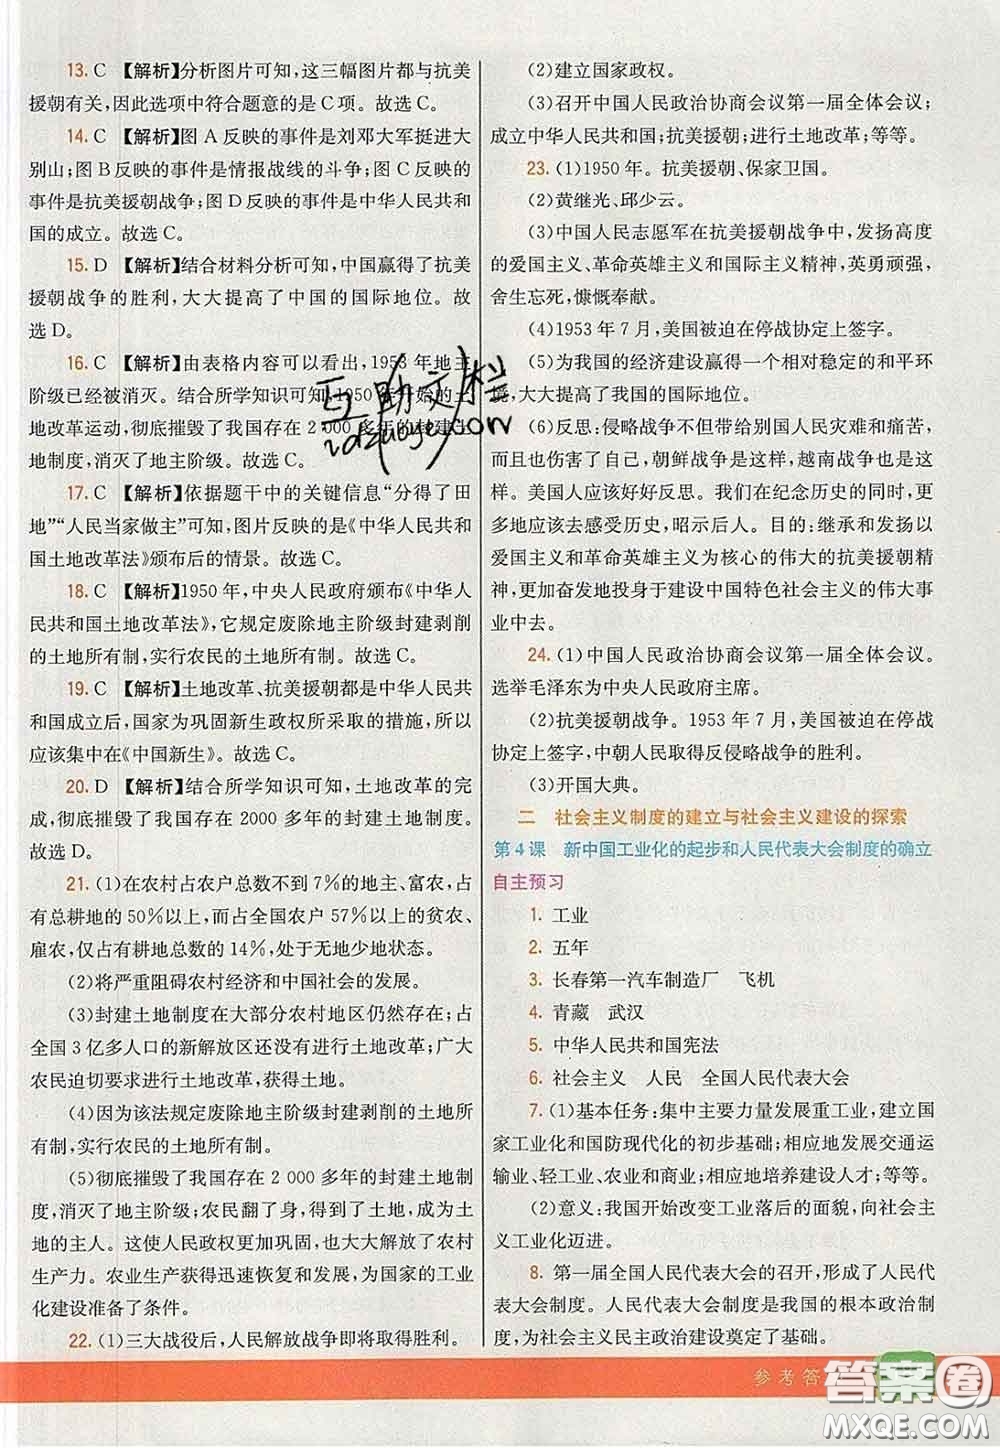 13. C 【解析】分析图片可知,这三幅图片都与抗美
援朝有关,因此选项中符合题意的是C项。故选C。
14. C 【解析】图A反映的事件是刘邓大军挺进大
别山;图B反映的事件是情报战线的斗争;图C反映的
事件是抗美援朝战争;图D反映的事件是中华人民共和
国的成立。故选C。
15. D 【解析】结合材料分析可知,中国赢得了抗美
援朝战争的胜利,大大提高了中国的国际地位。故
选D。
16. C 【解析】由表格内容可以看出,1953年地主
阶级已经被消灭。结合所学知识可知,1950年开始的土
地改革运动,彻底摧毁了我国存在2 000多年的封建土
地制度,消灭了地主阶级。故选C。
17. C 【解析】依据题干中的关键信息“分得了田
地”“人民当家做主”可知,图片反映的是《中华人民共和
国土地改革法》颁布后的情景。故选C。
18. C 【解析】1950年,中央人民政府颁布《中华人
民共和国土地改革法》,它规定废除地主阶级封建剥削
的土地所有制,实行农民的土地所有制。故选C。
19. C 【解析】土地改革、抗美援朝都是中华人民共
和国成立后,国家为巩固新生政权所采取的措施,所以
应该集中在《中国新生》。故选C。
20. D 【解析】结合所学知识可知,土地改革的完
成,彻底摧毁了我国存在2000多年的封建土地制度。
故选D。
21. (1)在农村占农户总数不到7%的地主、富农,占
有总耕地的50%以上,而占全国农户57%以上的贫农、
雇农,仅占有耕地总数的14%,处于无地少地状态。
(2)将严重阻碍农村经济和中国社会的发展。
(3)封建土地制度在大部分农村地区仍然存在;占
全国3亿多人口的新解放区还没有进行土地改革;广大
农民迫切要求进行土地改革,获得土地。
(4)因为该法规定废除地主阶级封建剥削的土地所
有制,实行农民的土地所有制。
(5)彻底摧毁了我国存在2 000多年的封建土地制
度,消灭了地主阶级;农民翻了身,得到了土地,成为土
地的主人。这使人民政权更加巩固,也大大解放了农村
生产力。农业生产获得迅速恢复和发展,为国家的工业
化建设准备了条件。
22. (1)三大战役后,人民解放战争即将取得胜利。
(2)建立国家政权。
(3)召开中国人民政治协商会议第一届全体会议;
成立中华人民共和国;抗美援朝;进行土地改革;等等。
23. (1)1950年。抗美援朝、保家卫国。
(2)黄继光、邱少云。
(3)中国人民志愿军在抗美援朝战争中,发扬高度
的爱国主义、革命英雄主义和国际主义精神,英勇顽强,
舍生忘死,慷慨奉献。
(4)1953年7月,美国被迫在停战协定上签字。
(5)为我国的经济建设赢得一个相对稳定的和平环
境,大大提高了我国的国际地位。
(6)反思:侵略战争不但带给别国人民灾难和痛苦,
而且也伤害了自己,朝鲜战争是这样,越南战争也是这
样。美国人应该好好反思。我们在纪念历史的同时,更
多地应该去感受历史,昭示后人。目的:继承和发扬以
爱国主义和革命英雄主义为核心的伟大的抗美援朝精
神,更加奋发地投身于建设中国特色社会主义的伟大事
业中去。
24. (1)中国人民政治协商会议第一届全体会议。
选举毛泽东为中央人民政府主席。
(2)抗美援朝战争。1953年7月,美国被迫在停战
协定上签字,中朝人民取得反侵略战争的胜利。
(3)开国大典。
二 社会主义制度的建立与社会主义建设的探索
第4课 新中国工业化的起步和人民代表大会制度的确立
自主预习
1. 工业
2. 五年
3. 长春第一汽车制造厂 飞机
4. 青藏 武汉
5. 中华人民共和国宪法
6. 社会主义 人民 全国人民代表大会
7. (1)基本任务:集中主要力量发展重工业,建立国
家工业化和国防现代化的初步基础;相应地发展交通运
输业、轻工业、农业和商业;相应地培养建设人才;等等。
(2)意义:我国开始改变工业落后的面貌,向社会主
义工业化迈进。
8. 第一届全国人民代表大会的召开,形成了人民代
表大会制度。人民代表大会制度是我国的根本政治制
度,为社会主义民主政治建设奠定了基础。
参考答
答案卷
MXQE.COM
互助文栏